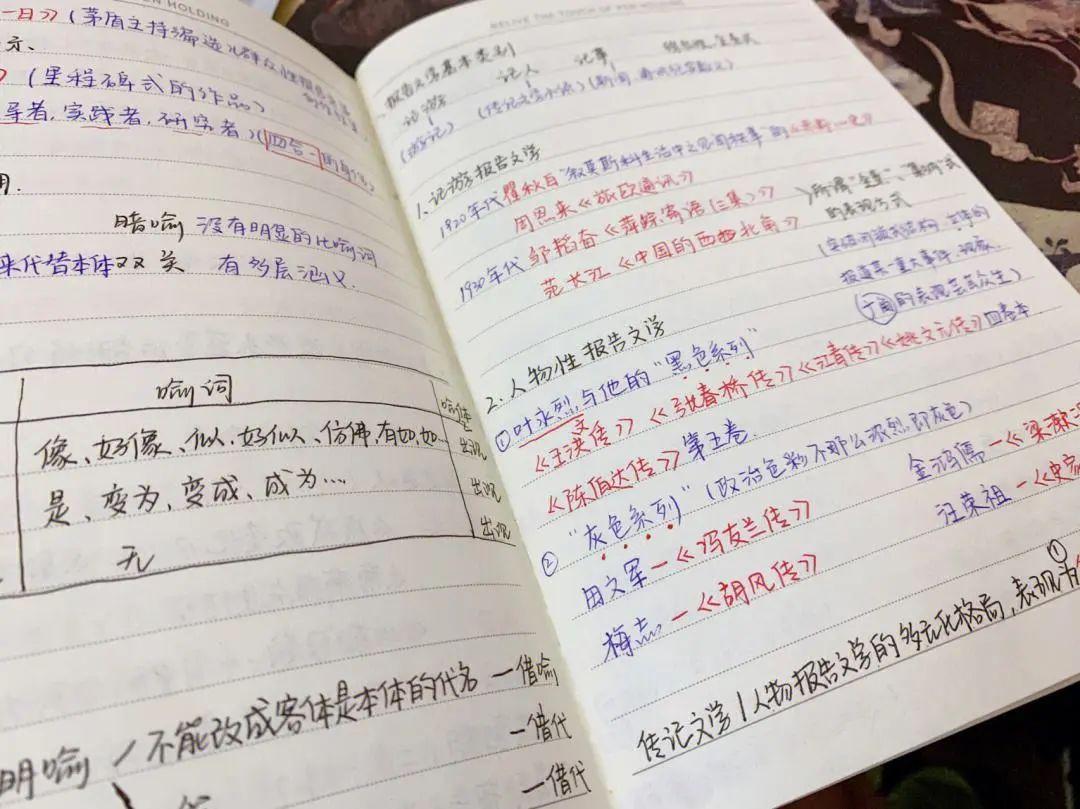 EN HOLDING
一日》》（茅盾主持编选
示、
》（里程碑式的作品）
导者，实践者，研究者）（四合一的身份）
用.
暗喻 没有明显的比喻词
来代替本体 双关 有多层涵义.
喻词
喻体
像、好像、似、好似、仿佛，有如，如... 出现
是、变为，变成、成为... 出现
无 出现
不能改成客体是本体的代名 一借喻
明喻 一借代
一借代
RELIVE THE TOUCH OF PEN HOLDING
报告文学基本类别
记游 记人 记事
（游记）
1、记游报告文学
1920年代 瞿秋白"叙莫斯科生活中之见闻轶事"的
周恩来《旅欧通讯》
1930年代 邹韬奋《萍踪寄语（三集）》
范长江《中国的西北角》
所谓"全景"、"集纳"式
的表现方式
报道某一重大事件、现象
（广角的表现芸芸众生）
2.人物性报告文学
①叶永烈，与他的"黑色系列"
《王洪文传》《张春桥传》《江青传》《姚文元传》四卷本
《陈伯达传》第五卷
②"灰色系列"（政治色彩不那么浓烈，即灰色）
田文军—《冯友兰传》 金鸿儒—《梁漱
梅志—《胡风传》 汪荣祖—《史家
①
传记文学/人物报告文学的多元化格局，表现为